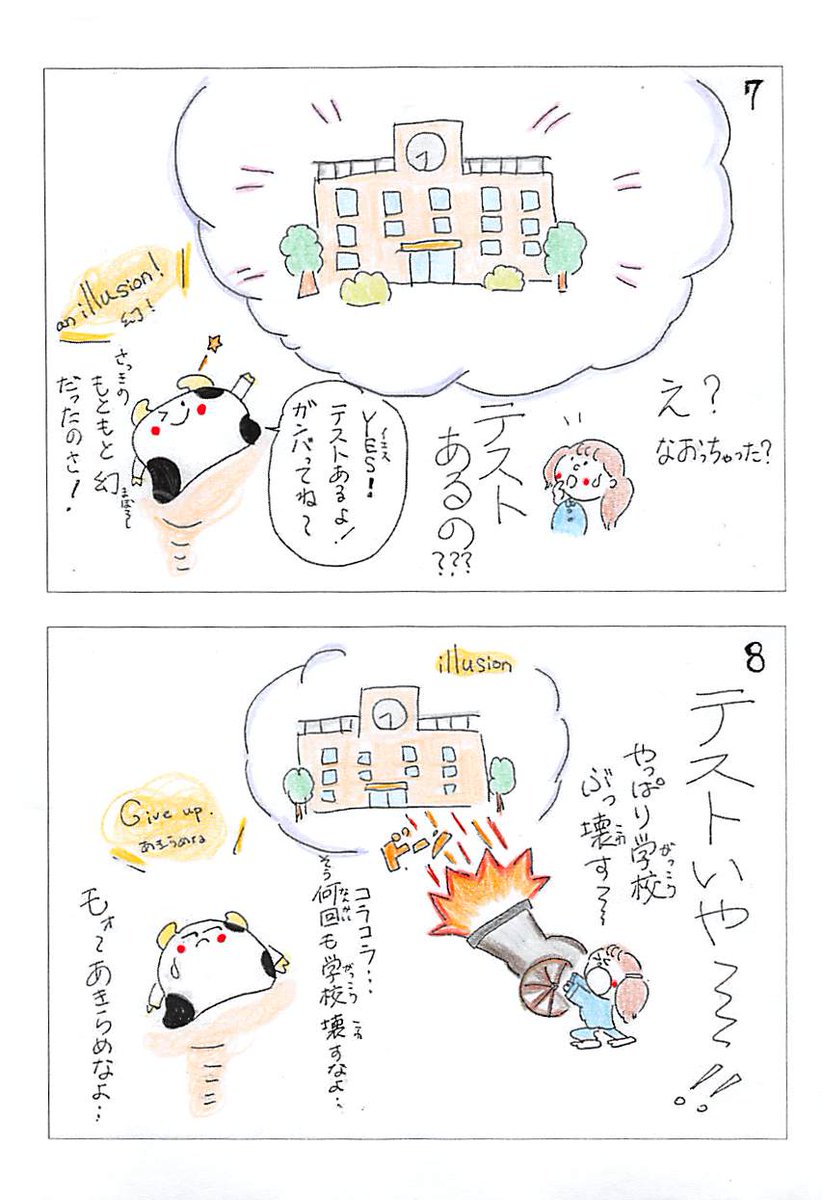 7
え?
なおっちゃった?
テスト
あるの???
YES!
イエス
テストあるよ!
ガンバってね〜
an illusion!
幻!
さっきの
もともと幻
まぼろし
だったのさ!
8
テストいや〜〜〜!!
やっぱり学校
がっこう
ぶっ壊す〜〜
こわ
illusion
ドーン
コラコラ…
そう何回も学校壊すなよ…
なんかい
がっこう
こわ
Give up.
あきらめる
モォ〜あきらめなよ…